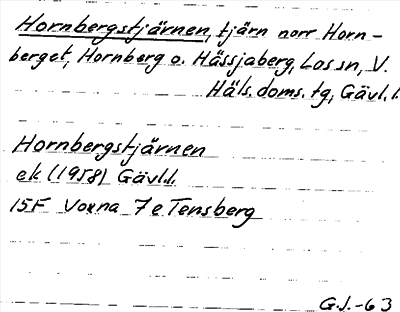 Hornbergstjärnen, tjärn norr Horn-
berget, Hornberg o. Hässjaberg, Los sn, V.
Häls. doms. tg, Gävl. l.
Hornbergstjärnen
ek (1958) Gävl.l.
15F Voxna 7e Tensberg
G.J.-63